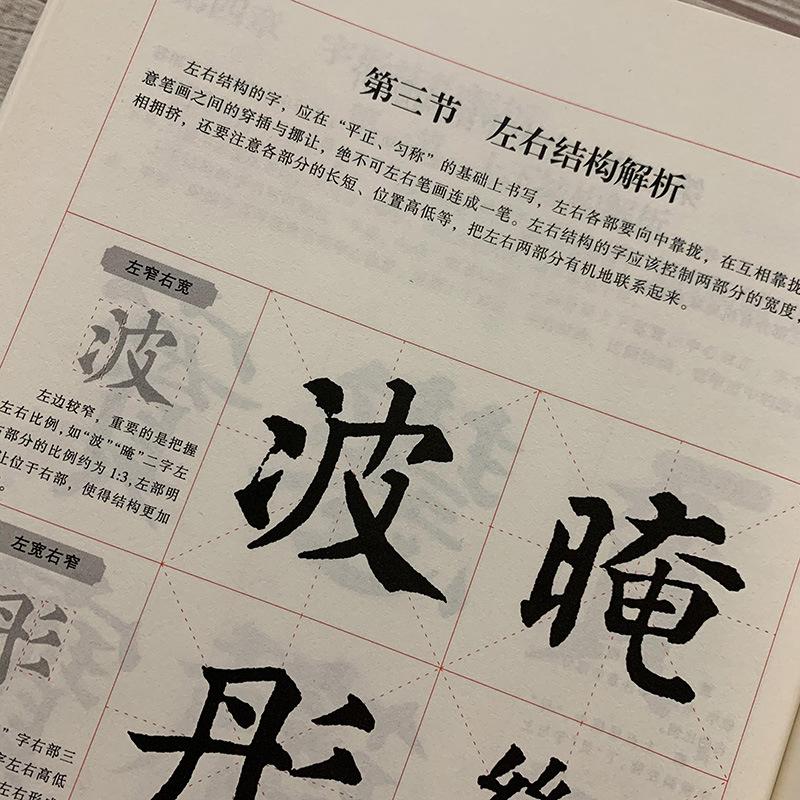 第三节 左右结构解析
左右结构的字，应在“平正、匀称”的基础上书写，左右各部要向中靠拢，在互相靠拢
意笔画之间的穿插与挪让，绝不可左右笔画连成一笔。左右结构的字应该控制两部分的宽度，
相拥挤，还要注意各部分的长短、位置高低等，把左右两部分有机地联系起来。
左窄右宽
波
左边较窄，重要的是把握
左右比例，如“波”“晻”二字左
右部分的比例约为1:3，左部明
让位于右部，使得结构更加
。
波
晻
左宽右窄
彤
彤
”字右部三
字左右高低